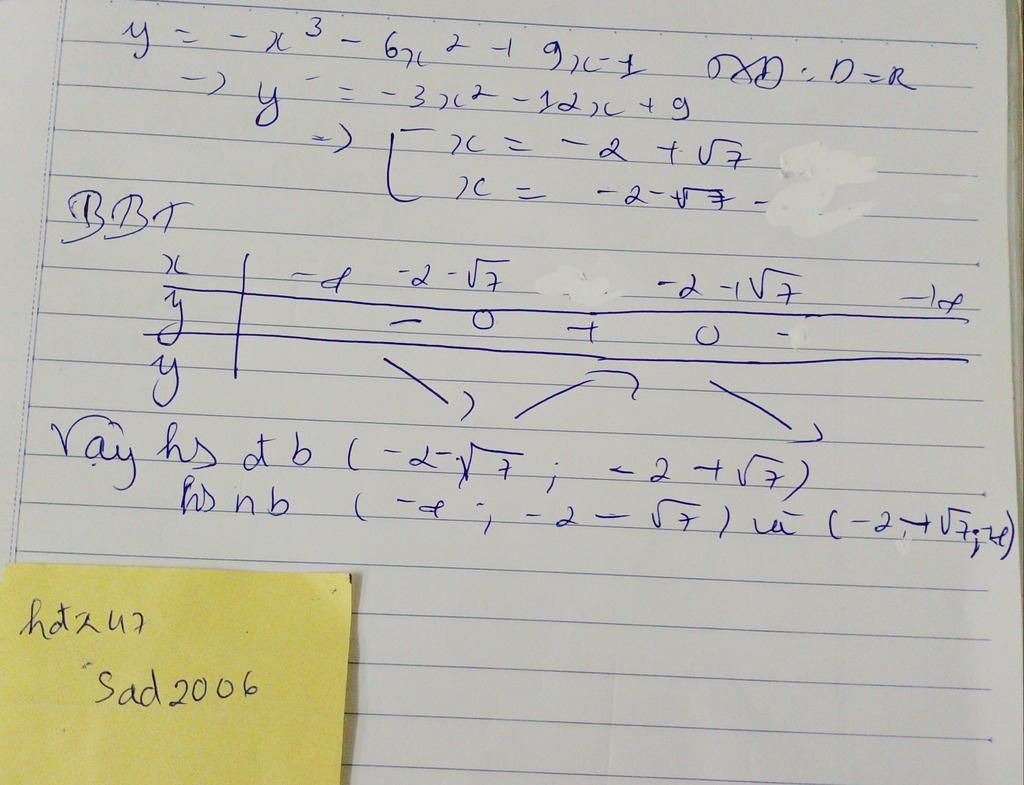 y = -x³ - 6x² + 9x - 1 TXĐ: D = R
=> y' = -3x² - 12x + 9
=> [ x = -2 + √7
x = -2 - √7
BBT
x | -∞ -2-√7 -2+√7 +∞
y' | - 0 + 0 -
y | ↘ ↗ ↘
Vậy hs đb (-2-√7; -2+√7)
hs nb (-∞; -2-√7) và (-2+√7; +∞)
hdz47
Sad2006